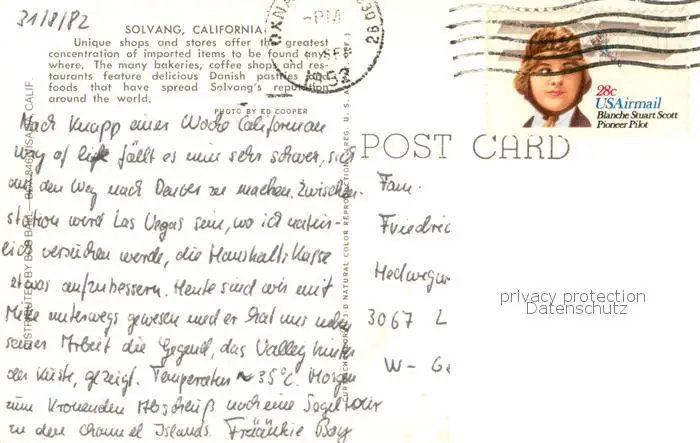 31/8/82
SOLVANG, CALIFORNIA
Unique shops and stores offer the greatest
concentration of imported items to be found any-
where. The many bakeries, coffee shops and res-
taurants feature delicious Danish pastries and
foods that have spread Solvang's reputation
around the world.
PHOTO BY ED COOPER
Nach knapp einer Woche Californian
way of life fällt es mir sehr schwer, sich
auf den Weg nach Denver zu machen. Zwischen-
station wird Las Vegas sein, wo ich natür-
lich versuchen werde, die Haushaltskasse
etwas aufzubessern. Heute sind wir mit
Mike unterwegs gewesen und er hat uns neben
seiner Arbeit die Gegend, das Valley hinter
der Küste, gezeigt. Temperaturen ~ 35°C. Morgen
zum krönenden Abschluß noch eine Segeltour
zu den Channel Islands. Fräänkie Boy
DISTRIBUTED BY BOB
CALIF.
NATURAL COLOR REPRODUCTION (REG. U. S.
OXNARD
PM
28c
USAirmail
Blanche Stuart Scott
Pioneer Pilot
POST CARD
Fam.
Friedric
Hedwigs
3067 L
W- Ge
privacy protection
Datenschutz